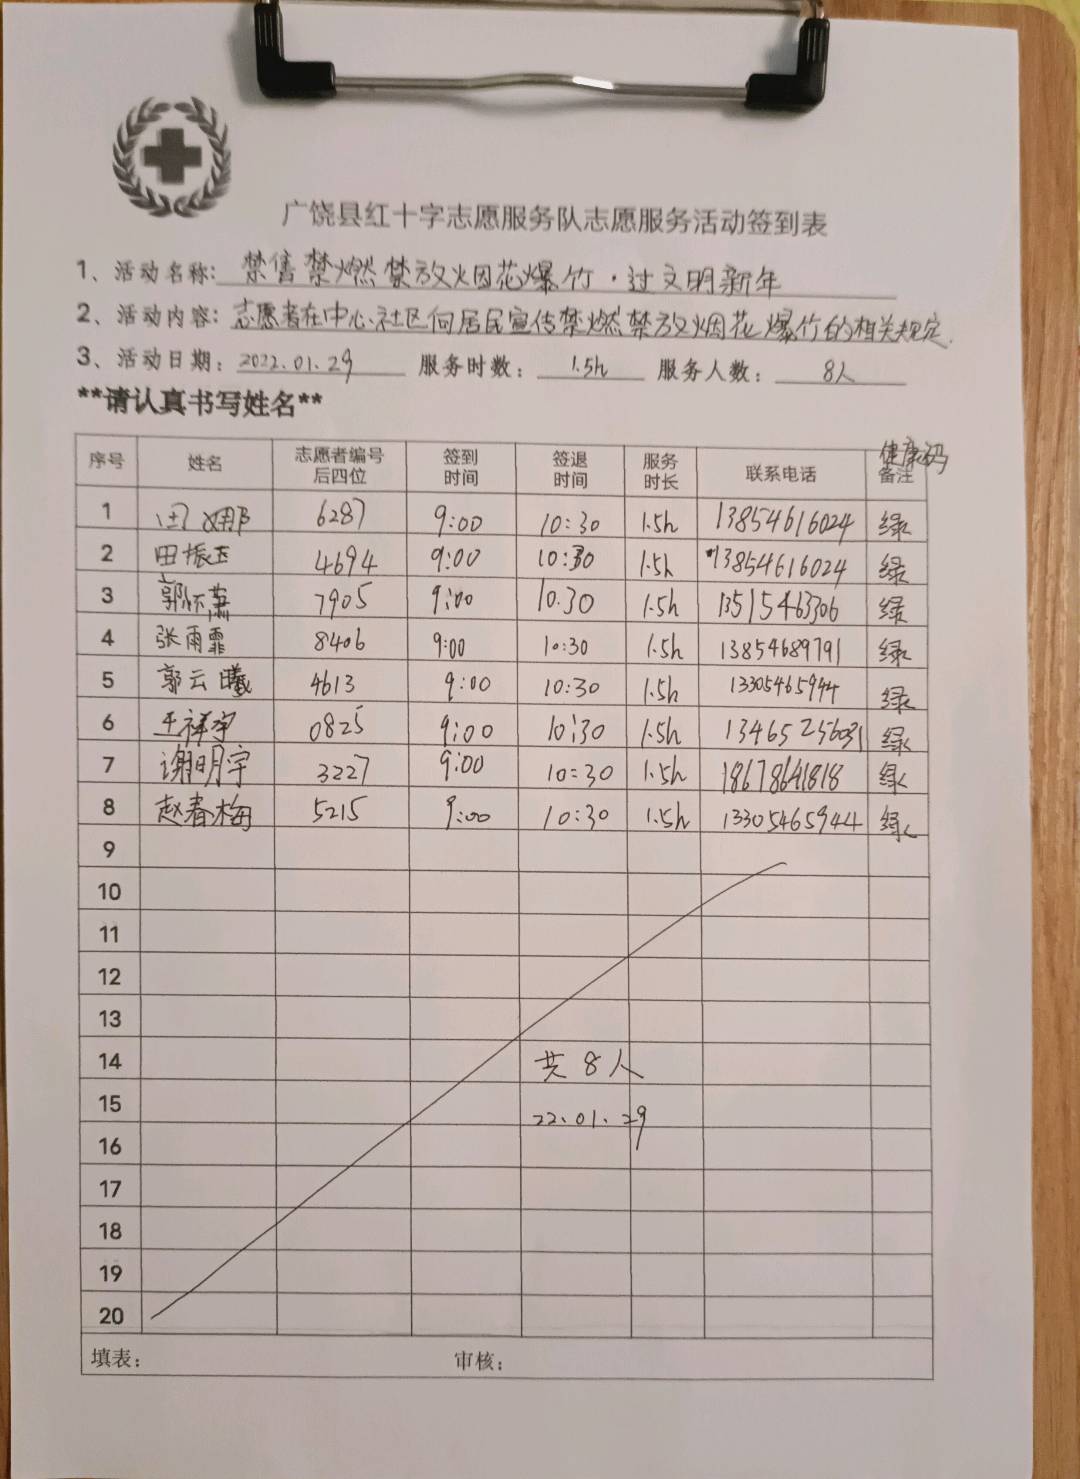 广饶县红十字志愿服务队志愿服务活动签到表
1、活动名称: 禁售禁燃禁放烟花爆竹·过文明新年
2、活动内容: 志愿者在中心社区向居民宣传禁燃禁放烟花爆竹的相关规定.
3、活动日期: 2022.01.29 服务时数: 1.5h 服务人数: 8人
**请认真书写姓名**
健康码
序号 姓名 志愿者编号后四位 签到时间 签退时间 服务时长 联系电话 备注
1 田娜 6287 9:00 10:30 1.5h 13854616024 绿
2 田振玉 4694 9:00 10:30 1.5h 13854616024 绿
3 郭怀萧 7905 9:00 10.30 1.5h 13515463306 绿
4 张雨霏 8406 9:00 10:30 1.5h 13854689791 绿
5 郭云曦 4613 9:00 10:30 1.5h 13305465944 绿
6 王祥宇 0825 9:00 10:30 1.5h 13465256031 绿
7 谢明宇 3227 9:00 10:30 1.5h 18678641818 绿
8 赵春梅 5215 9:00 10:30 1.5h 13305465944 绿
9
10
11
12
13
14 共8人
15 22.01.29
16
17
18
19
20
填表: 审核: